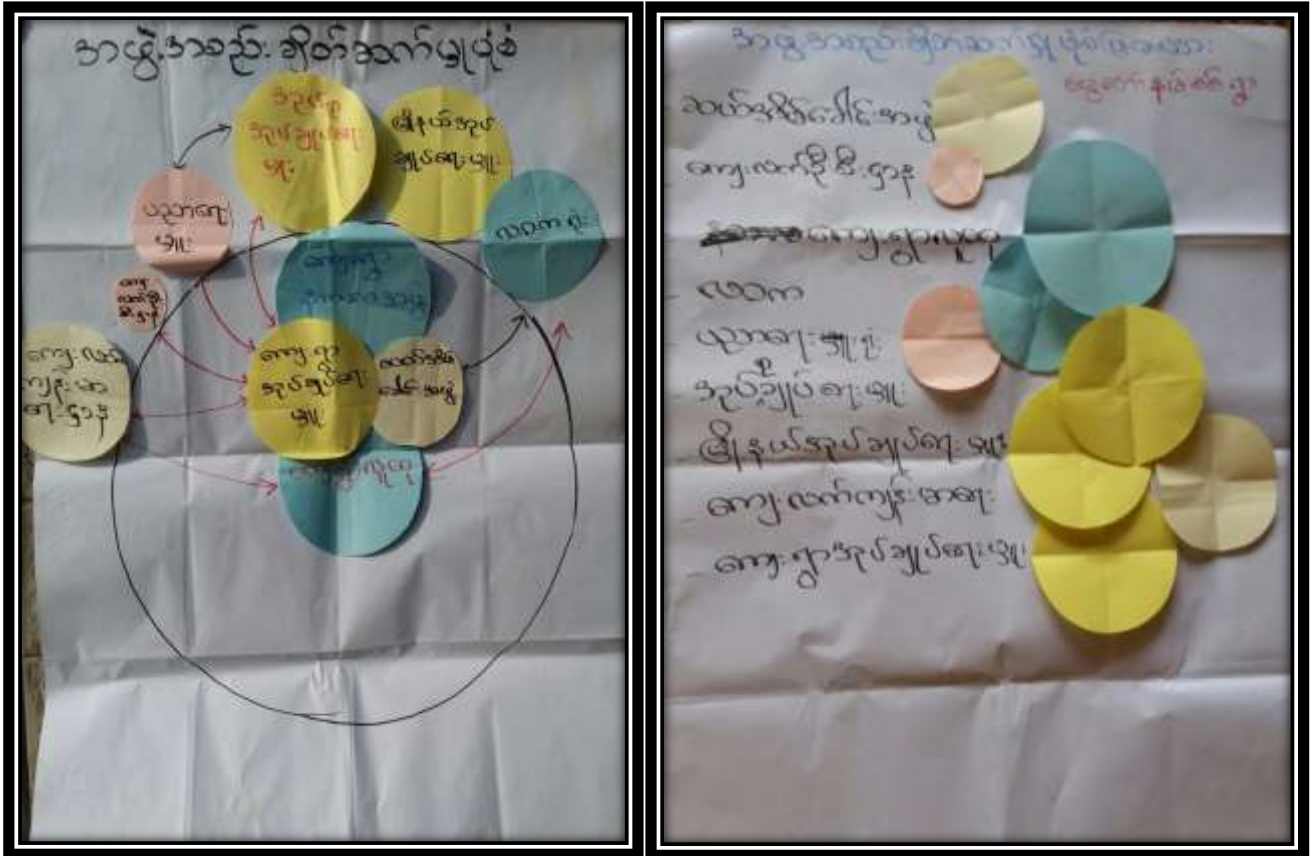 အဖွဲ့အစည်းချိတ်ဆက်မှုပုံစံ
အုပ်ချုပ်ရေး
မှူး
မြို့နယ်အုပ်
ချုပ်ရေးမှူး
ပညာရေး
မှူး
လဝကရုံး
ကျေး
လက်ဦး
စီးဌာန
ကျေးရွာ
ကျေးလက်
ကျန်းမာ
ရေးဌာန
ကျေးရွာ
အုပ်ချုပ်ရေး
မှူး
ဆယ်အိမ်
ခေါင်းအဖွဲ့
ကျေးရွာလူထု
အဖွဲ့အစည်းချိတ်ဆက်မှုပုံစံပြကား
- ဆယ်အိမ်ခေါင်းအဖွဲ့
- ကျေးလက်ဦးစီးဌာန
- ကျေးရွာလူထု
- လဝက
- ပညာရေးရုံး
- အုပ်ချုပ်ရေးမှူး
- မြို့နယ်အုပ်ချုပ်ရေးမှူး
- ကျေးလက်ကျန်းမာရေး
- ကျေးရွာအုပ်ချုပ်ရေးမှူး